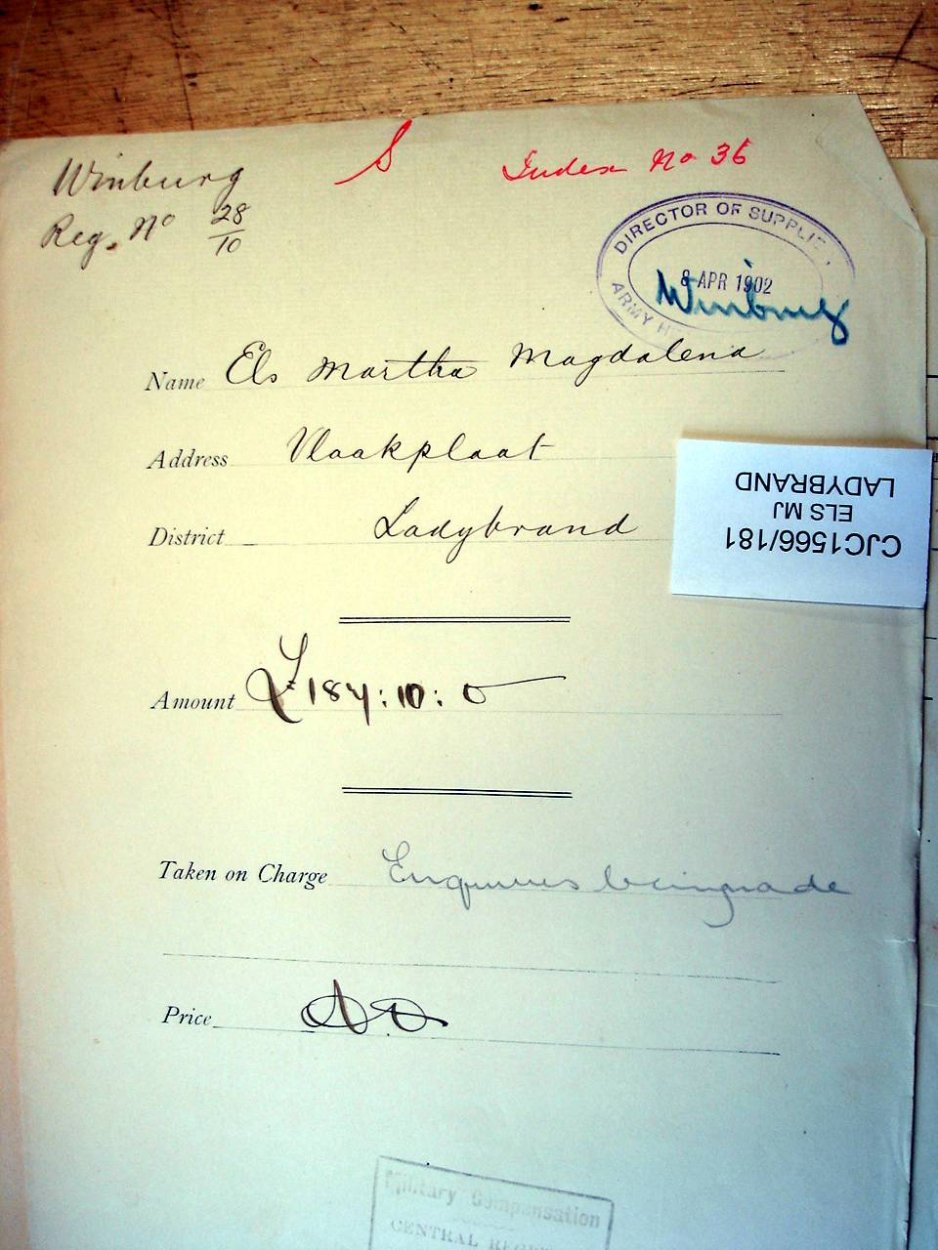 Winburg S Index No 36
Reg. No 28/10
DIRECTOR OF SUPPLIE
8 APR 1902
Winburg
ARMY H
Name Els Martha Magdalena
Address Vlaakplaat
CJC1566/181
ELS MJ
LADYBRAND
District Ladybrand
Amount £184:10:0
Taken on Charge Enquiries being made
Price
Military Compensation
CENTRAL REG